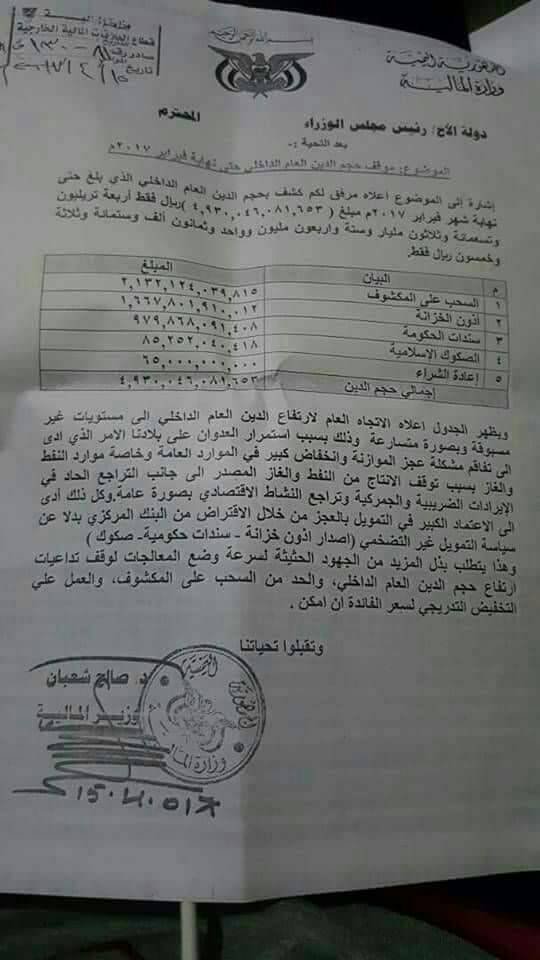 بسم الله الرحمن الرحيم
الجمهورية اليمنية
وزارة المالية
قطاع العلاقات المالية الخارجية
تاريخ
دولة الأخ/ رئيس مجلس الوزراء المحترم
بعد التحية :-
الموضوع: موقف حجم الدين العام الداخلي حتى نهاية فبراير ٢٠١٧م
إشارة إلى الموضوع اعلاه مرفق لكم كشف بحجم الدين العام الداخلي الذي بلغ حتى
نهاية شهر فبراير ٢٠١٧م مبلغ ( ٤,٩٣٠,٠٤٦,٠٨١,٦٥٣ )ريال فقط أربعة تريليون
وتسعمائة وثلاثون مليار وستة واربعون مليون وواحد وثمانون ألف وستمائة وثلاثة
وخمسون ريال فقط.
م البيان المبلغ
١ السحب على المكشوف ٢,١٣٢,١٢٤,٠٣٩,٨١٥
٢ أذون الخزانة ١,٦٦٧,٨٠١,٩١٠,٠١٢
٣ سندات الحكومة ٩٧٩,٨٦٨,٠٩١,٤٠٨
٤ الصكوك الإسلامية ٨٥,٢٥٢,٠٤٠,٤١٨
٥ إعادة الشراء ٦٥,٠٠٠,٠٠٠,٠٠٠
إجمالي حجم الدين ٤,٩٣٠,٠٤٦,٠٨١,٦٥٣
ويظهر الجدول اعلاه الاتجاه العام لارتفاع الدين العام الداخلي الى مستويات غير
مسبوقة وبصورة متسارعة وذلك بسبب استمرار العدوان على بلادنا الامر الذي ادى
الى تفاقم مشكلة عجز الموازنة وانخفاض كبير في الموارد العامة وخاصة موارد النفط
والغاز بسبب توقف الانتاج من النفط والغاز المصدر الى جانب التراجع الحاد في
الإيرادات الضريبية والجمركية وتراجع النشاط الاقتصادي بصورة عامة.وكل ذلك أدى
الى الاعتماد الكبير في التمويل بالعجز من خلال الاقتراض من البنك المركزي بدلا عن
سياسة التمويل غير التضخمي (اصدار اذون خزانة - سندات حكومية- صكوك )
وهذا يتطلب بذل المزيد من الجهود الحثيثة لسرعة وضع المعالجات لوقف تداعيات
ارتفاع حجم الدين العام الداخلي، والحد من السحب على المكشوف، والعمل علي
التخفيض التدريجي لسعر الفائدة ان امكن .
وتقبلوا تحياتنا
د. صالح شعبان
وزير المالية